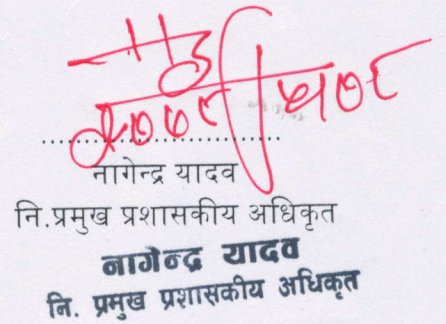 ..............................
नागेन्द्र यादव
नि.प्रमुख प्रशासकीय अधिकृत
नागेन्द्र यादव
नि. प्रमुख प्रशासकीय अधिकृत